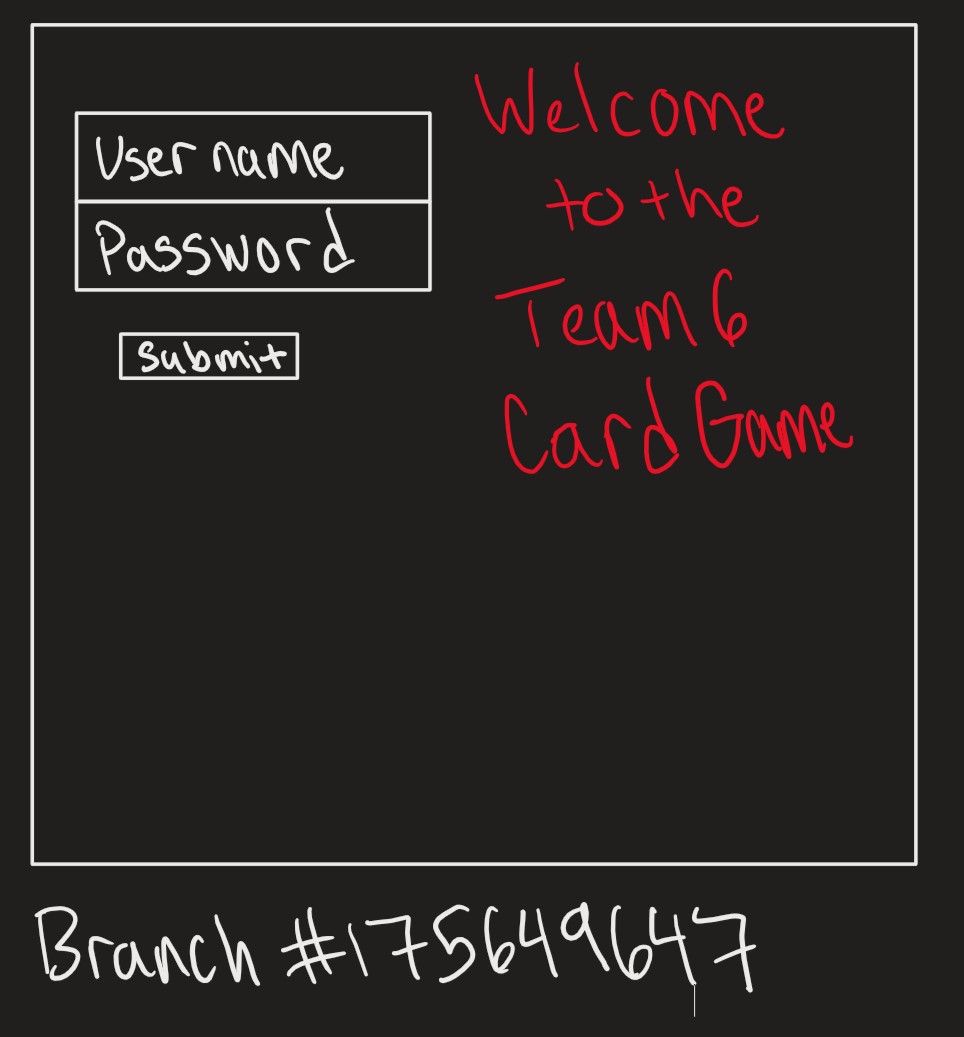 Username
Password
Submit
Welcome
to the
Team 6
Card Game
Branch #175649647